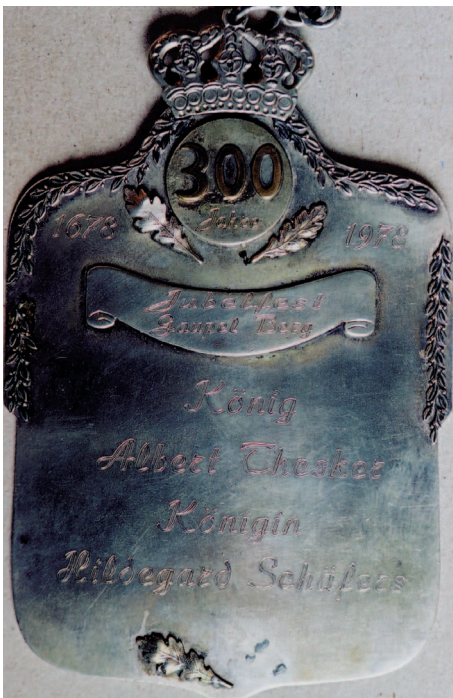 300
Jahre
1678 1978
Jubelfest
König
Albert Thesker
Königin
Hildegard Schäfers